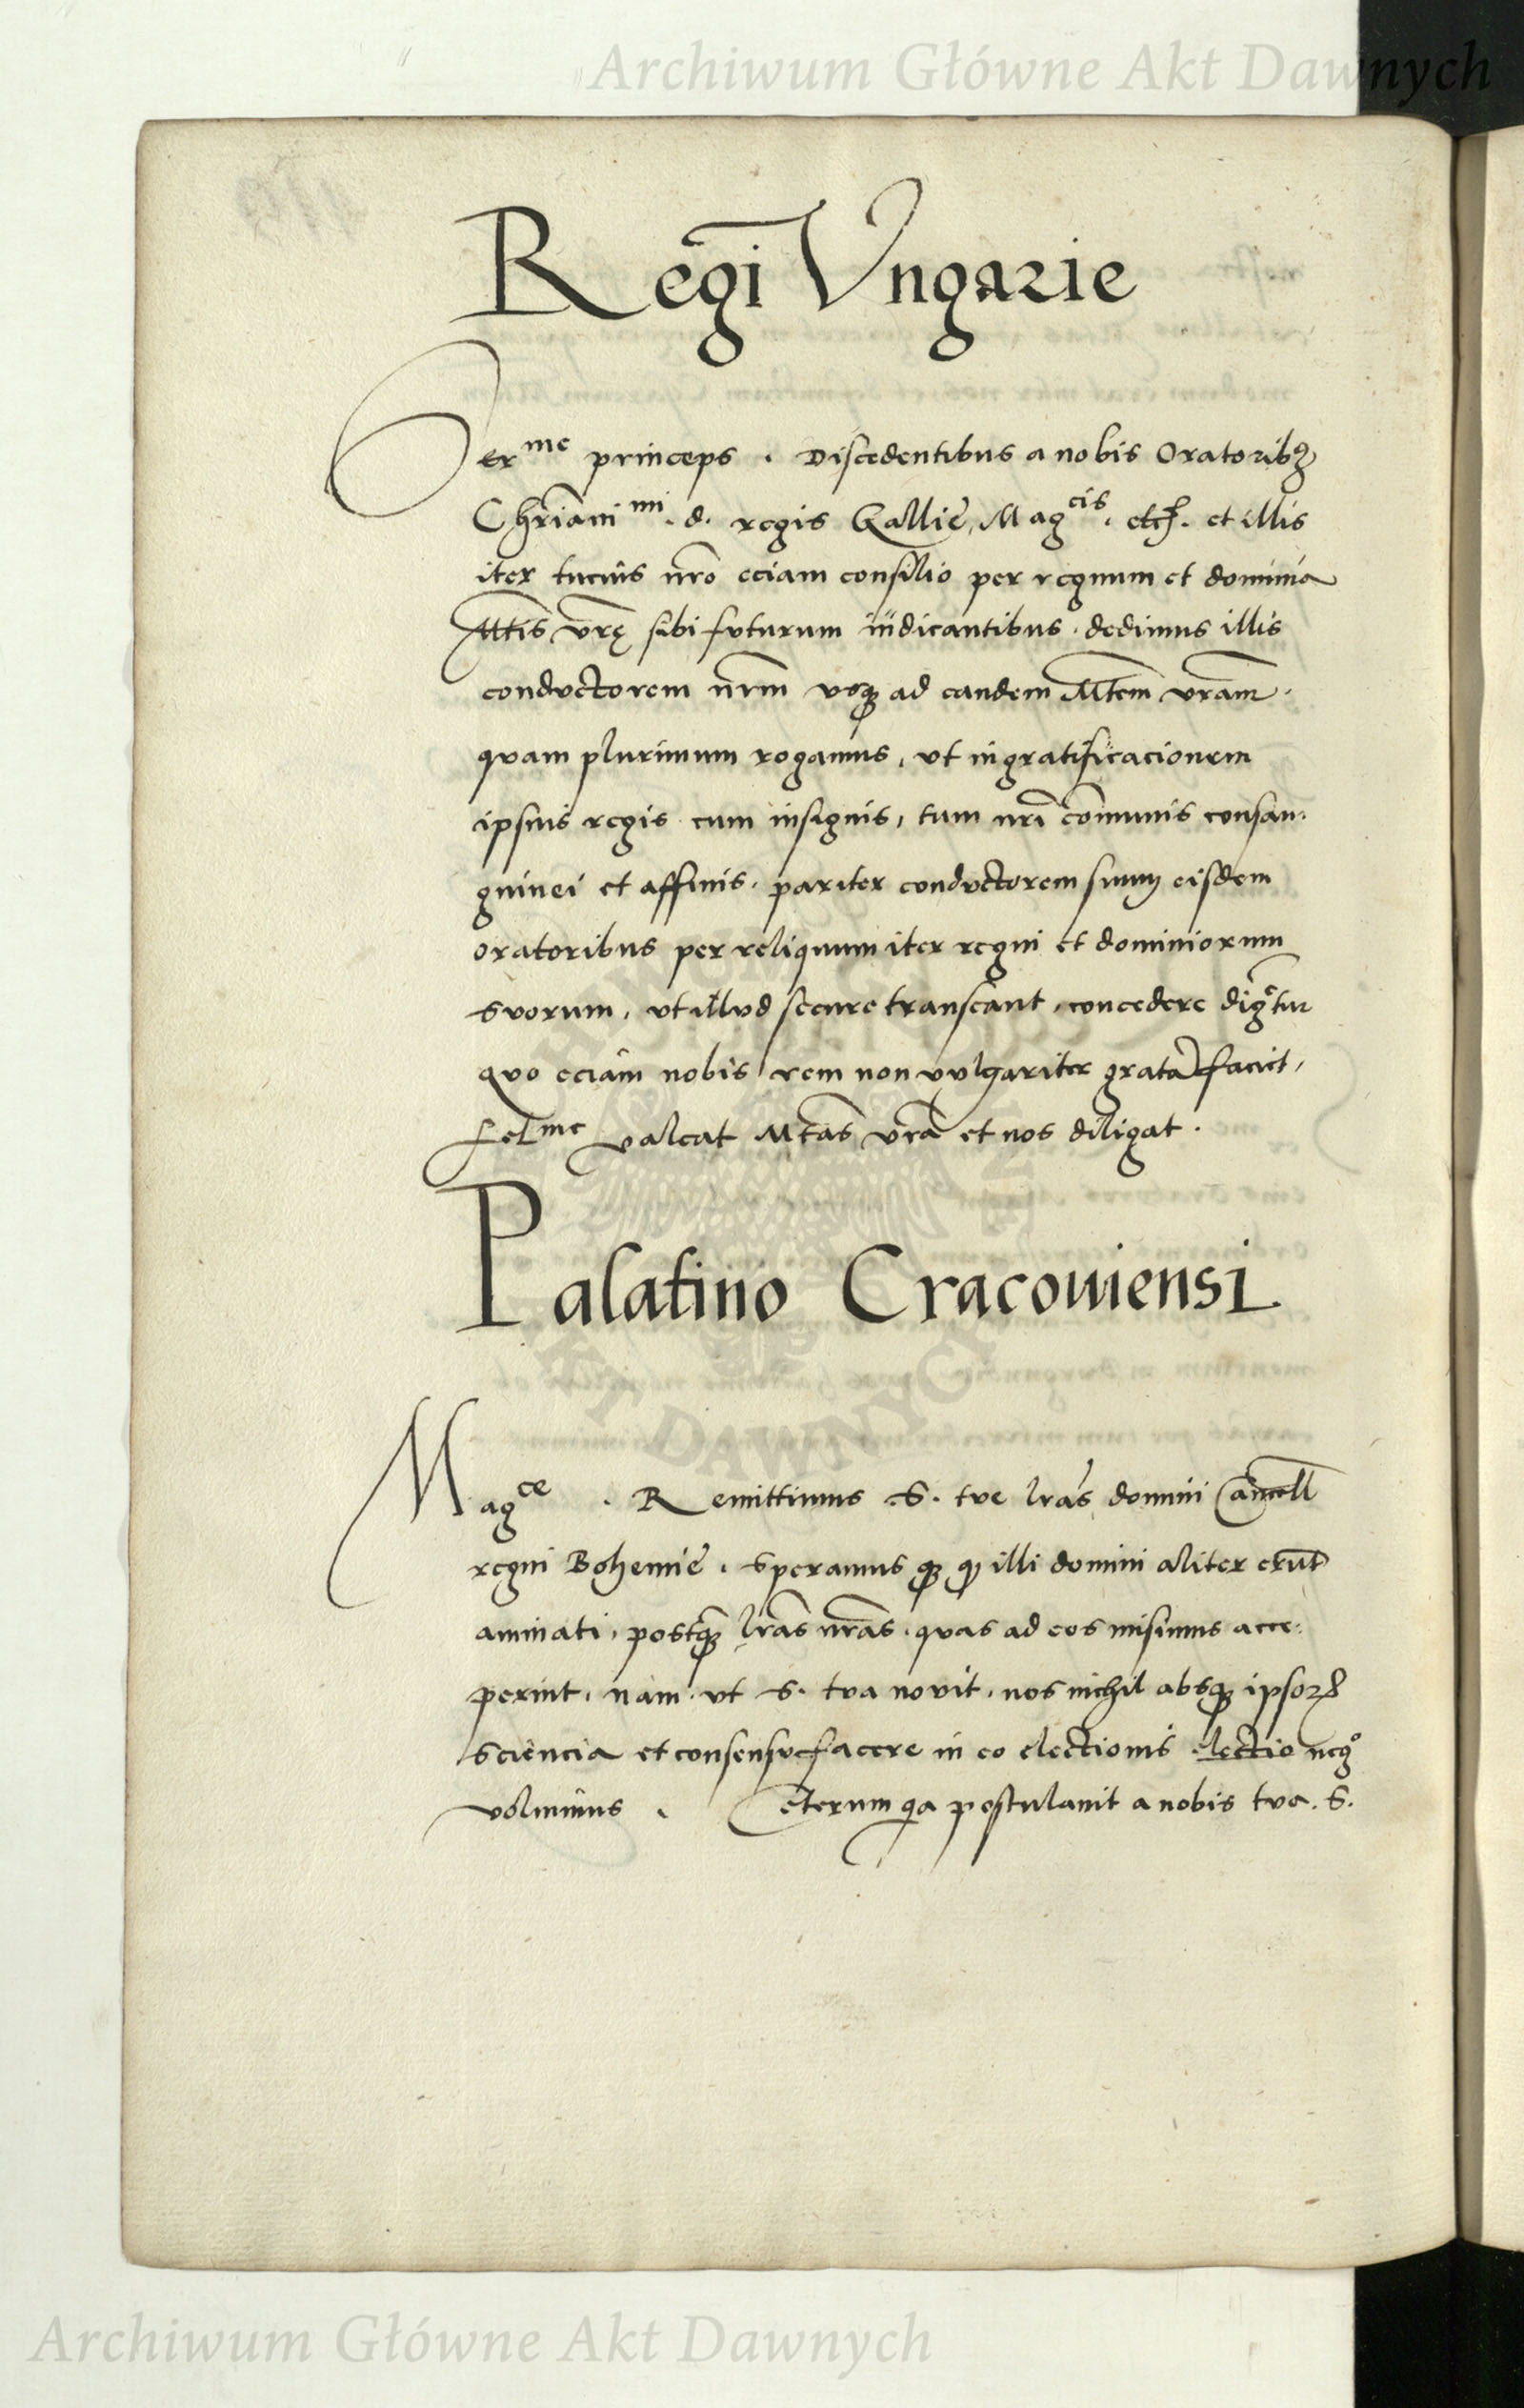 Archiwum Główne Akt Dawnych
Regi Vngarie
Ser^me princeps . Discedentibus a nobis Oratorib₉
Chr̄iani^mi . d . regis Gallie, Mag^cis . etc̄ . et illis
iter tucius nr̄o eciam consilio per regnum et dominia
Mt̄is vr̄ę sibi futurum iudicantibus . dedimus illis
conductorem nr̄m vsqꝫ ad eandem Mt̄em vr̄am .
quam plurimum rogamus, vt in gratificacionem
ipsius regis cum insignis, tum nr̄i com̄unis consan-
guinei et affinis . pariter conductorem suum eisdem
oratoribus per reliquum iter regni et dominiorum
suorum, vt illud secure transeant, concedere dig^etur
quo eciam nobis rem non vulgariter gratā faciet,
Fel^me valeat Mt̄as vr̄a et nos diligat .
Palatino Cracouiensi
Mag^ce . Remittimus .S. tue lr̄as domini Cancell̄
regni Bohemie . Speramus qꝫ ꝙ illi domini aliter erūt
animati, postqꝫ lr̄as nr̄as . quas ad eos misimus acce-
perint . nam . vt S. tua nouit . nos nichil absqꝫ ipsoꝝ
sciencia et consensu facere in eo electionis neg^o
voluimus . Ceterum q̇a postulauit a nobis tua . S.
AKT DAWNYCH
Archiwum Główne Akt Dawnych